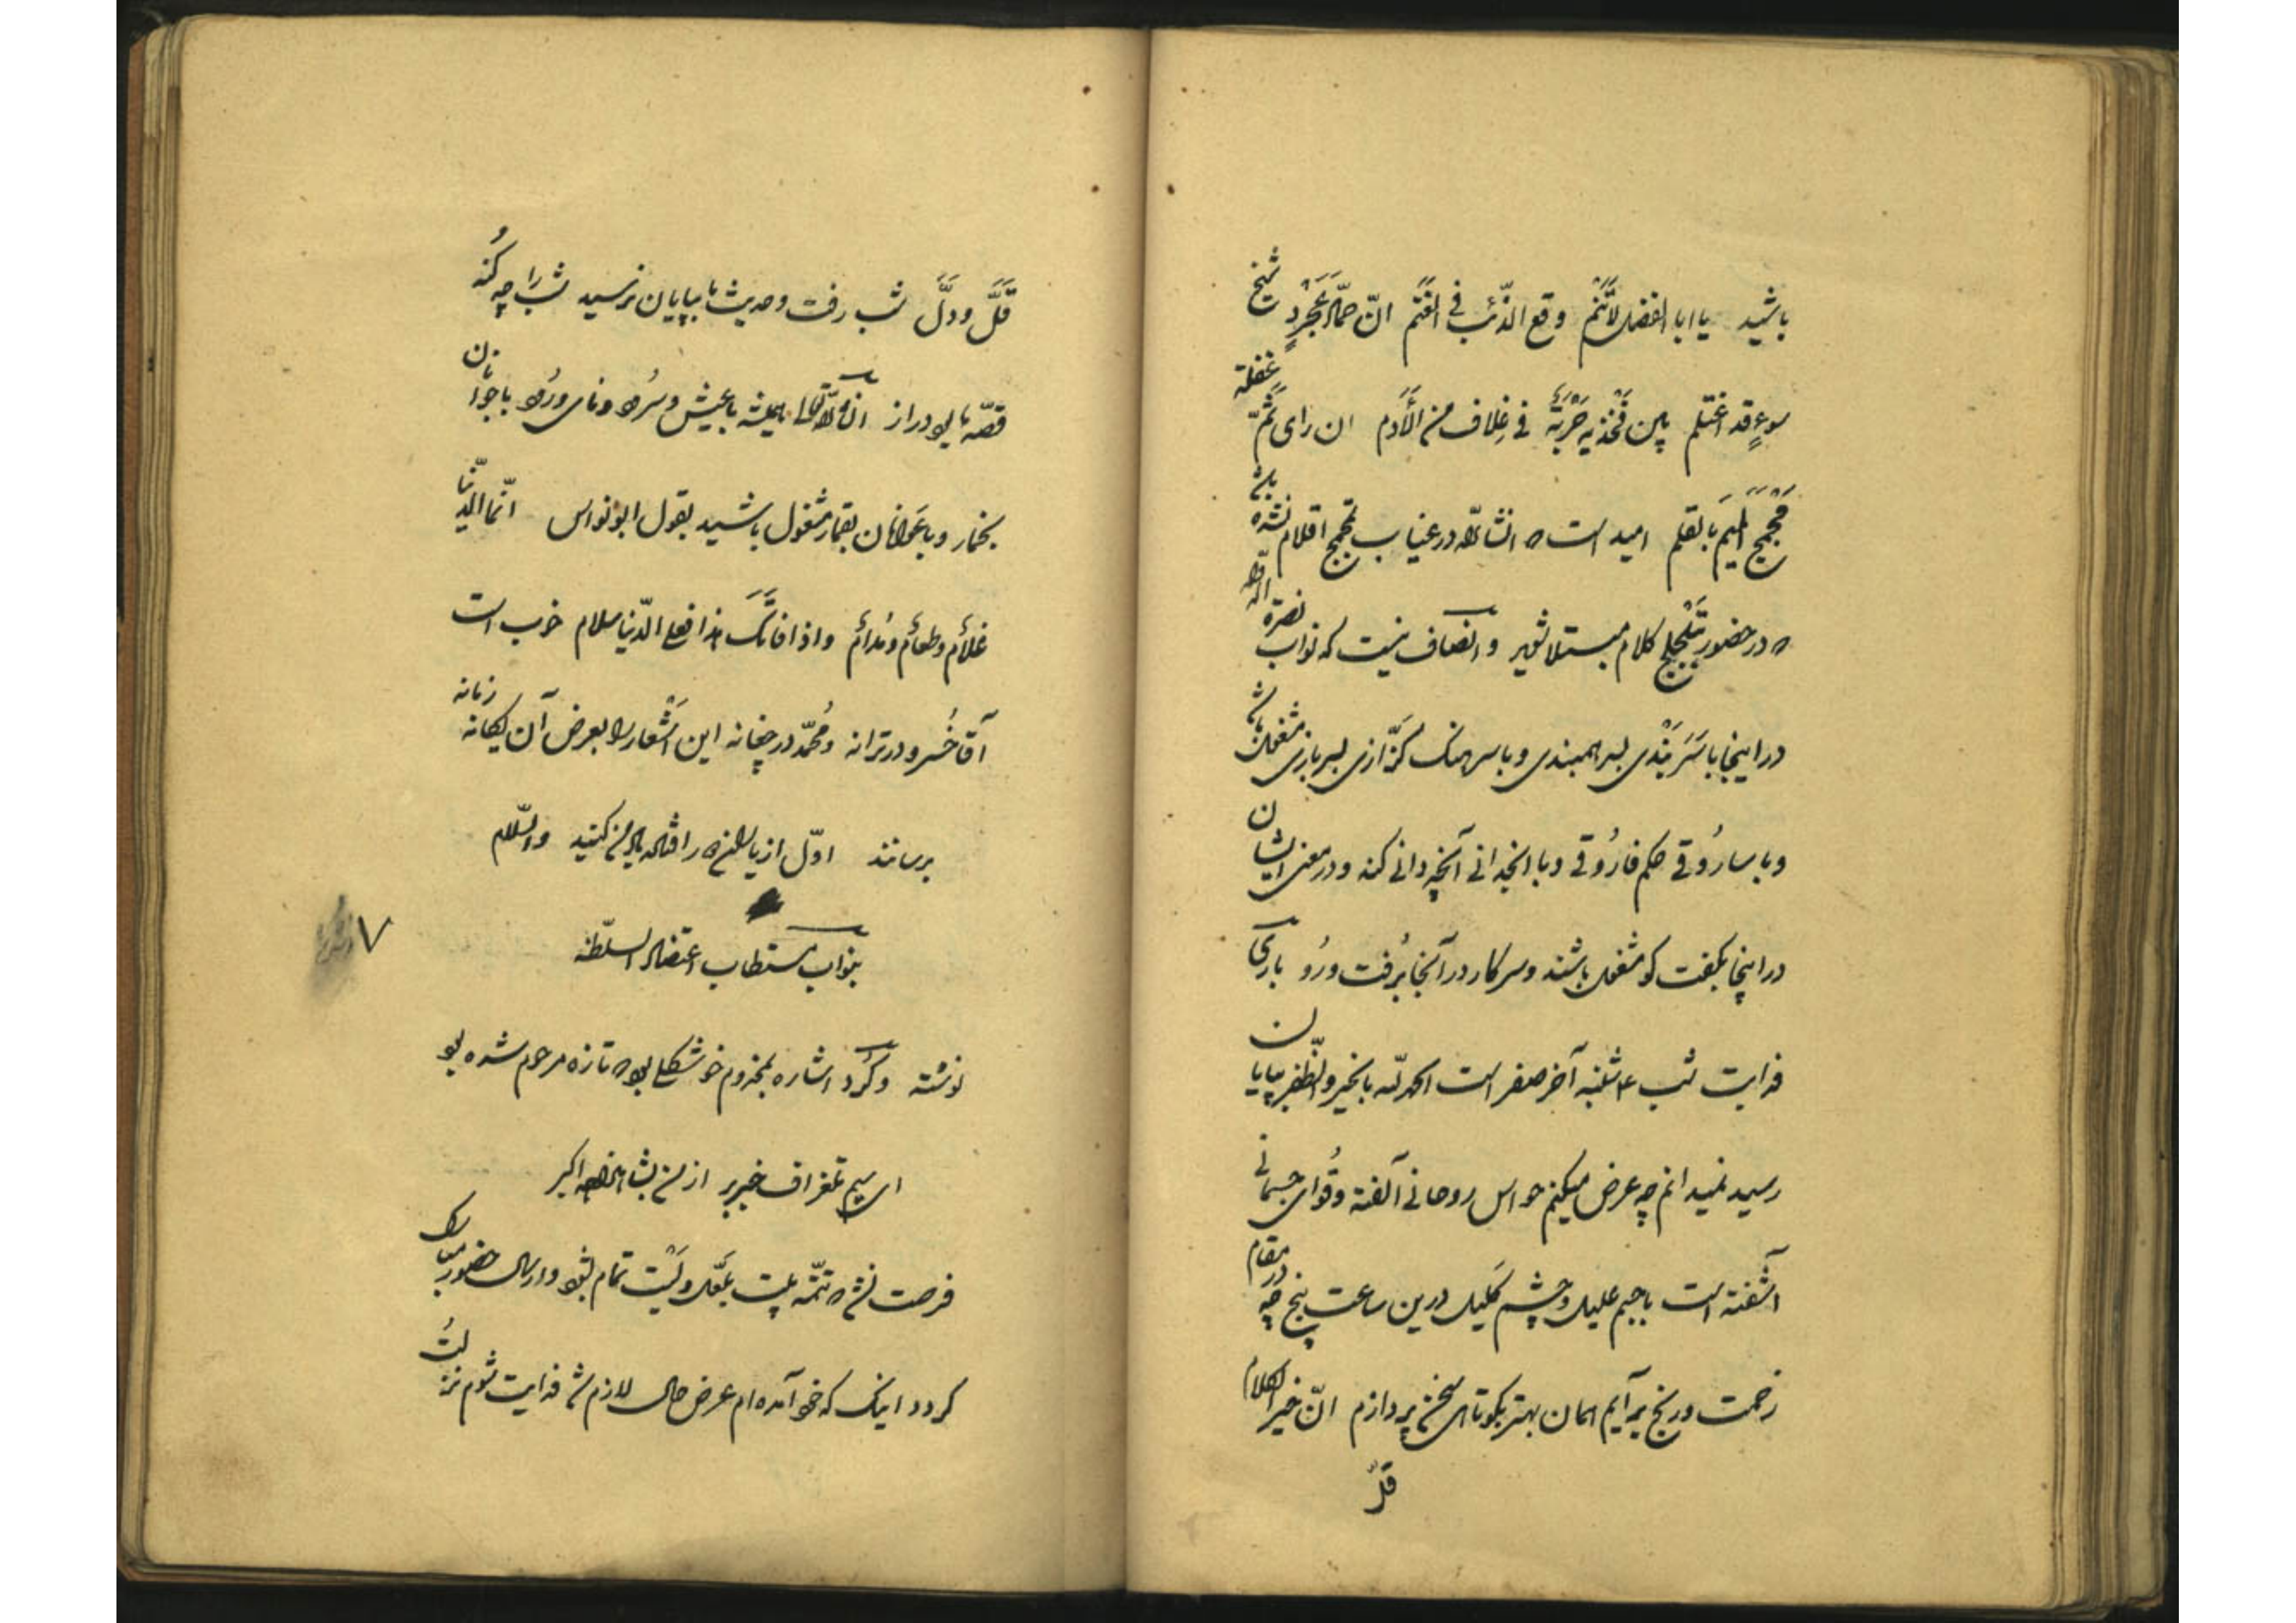 باشید یا ابا الفضل لاتنم وقع الذئب فی الغنم انّ حمّاد عجردٍ شیخ
سوءٍ قد اغتلم بین فخذیه حربة فی غلاف من الأدم ان رای ثمّ غفلة
مجمج المیم بالقلم امید است که انشاءالله در غیاب مجمج اقلام نشده باشد
که در حضور تلجلج کلام مبتلا شوید و انصاف نیست که نواب نصرة الدوله
در اینجا با سربندی بسر همبندی و با سرهنگ کزازی بسربازی مشغول باشد
و با ساروقی حکم فاروقی و با انجدانی آنچه دانی کند و در معنی ایشان
در اینجا بکفت کو مشغول باشند و سرکار در آنجا برفت و رو باری
فدایت شب ۴ شنبه آخر صفر است الحمدلله بالخیر والظفر بپایان
رسید نمیدانم چه عرض میکنم حواس روحانی آلفته و قوای جسمانی
آشفته است با جسم علیل و چشم کلیل درین ساعت پنج چه در مقام
زحمت و رنج برآیم همان بهتر بکوتاهی سخن پردازم انّ خیر الکلام
قلّ
قلّ و دلّ شب رفت و حدیث ما بپایان نرسید شب را چه کنه
قصّه ما بود دراز انشاءالله همیشه با عیش و سرود و نای و رود با جوانان
بخمار و با عوانان بقمار مشغول باشید بقول ابونواس انّما الدّنیا
غلامٌ و طعامٌ و مدامٌ واذا فاتک هذا فعلی الدّنیا سلام خوب است
آقا خسرو در ترانه و محمّد در چغانه این اشعار را بعرض آن یکانه زمانه
برسانند اوّل از بالاخره را فدای من کنید والسّلام
بنواب مستطاب اعتضاد السلطنه
۷
نوشته و کرد اشاره بمخدوم خوشکلی بود که تازه مرحوم شده بود
ای سیم تلغراف خبر بر از من بشاهزاده اکبر
فرصت نشد که تتمّه بیت بلعلّ و لیت تمام شود و ارسال حضور مبارک
کردد اینک که خود آمده‌ام عرض حال لازم شد فدایت شوم